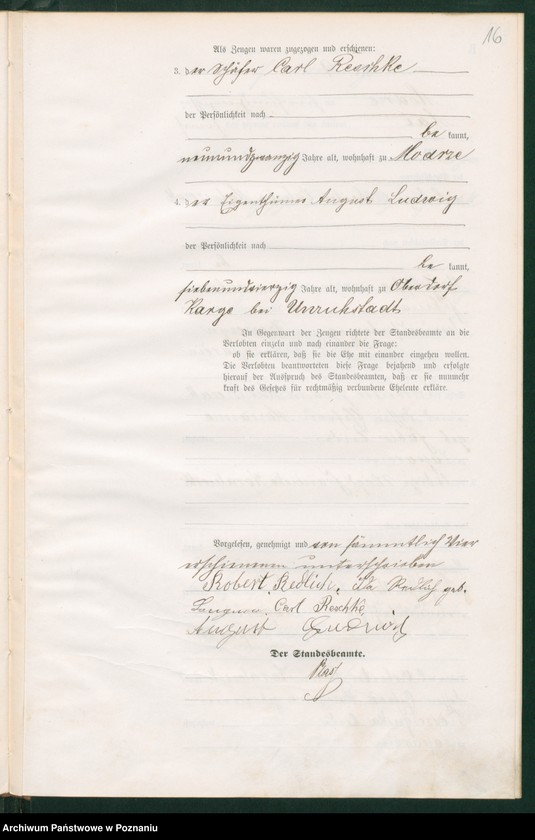 16
Als Zeugen waren zugezogen und erschienen:
3. der Schäfer Carl Reschke
der Persönlichkeit nach
be kannt,
neunundzwanzig Jahre alt, wohnhaft zu Modrze
4. der Eigenthümer August Ludwig
der Persönlichkeit nach
be kannt,
siebenundvierzig Jahre alt, wohnhaft zu Oberdorf
Kargo bei Unruhstadt
In Gegenwart der Zeugen richtete der Standesbeamte an die
Verlobten einzeln und nach einander die Frage:
ob sie erklären, daß sie die Ehe mit einander eingehen wollen.
Die Verlobten beantworteten diese Frage bejahend und erfolgte
hierauf der Ausspruch des Standesbeamten, daß er sie nunmehr
kraft des Gesetzes für rechtmäßig verbundene Eheleute erkläre.
Vorgelesen, genehmigt und von sämmtlich Vier
erschienenen unterschrieben
Robert Redlich. Ida Redlich geb.
Carl Reschke
August Ludwig
Der Standesbeamte.
Archiwum Państwowe w Poznaniu